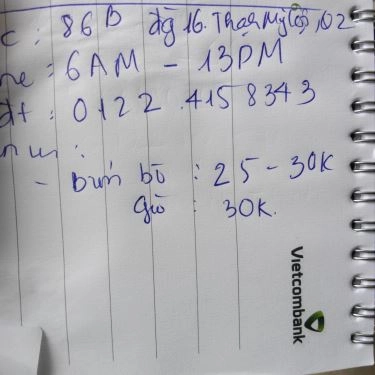 c: 86B đg 16. Thạnh Mỹ Lợi, Q2
me: 6AM - 13PM
đt: 0122.4158343
- bún bò: 25-30K
giò: 30K.
Vietcombank